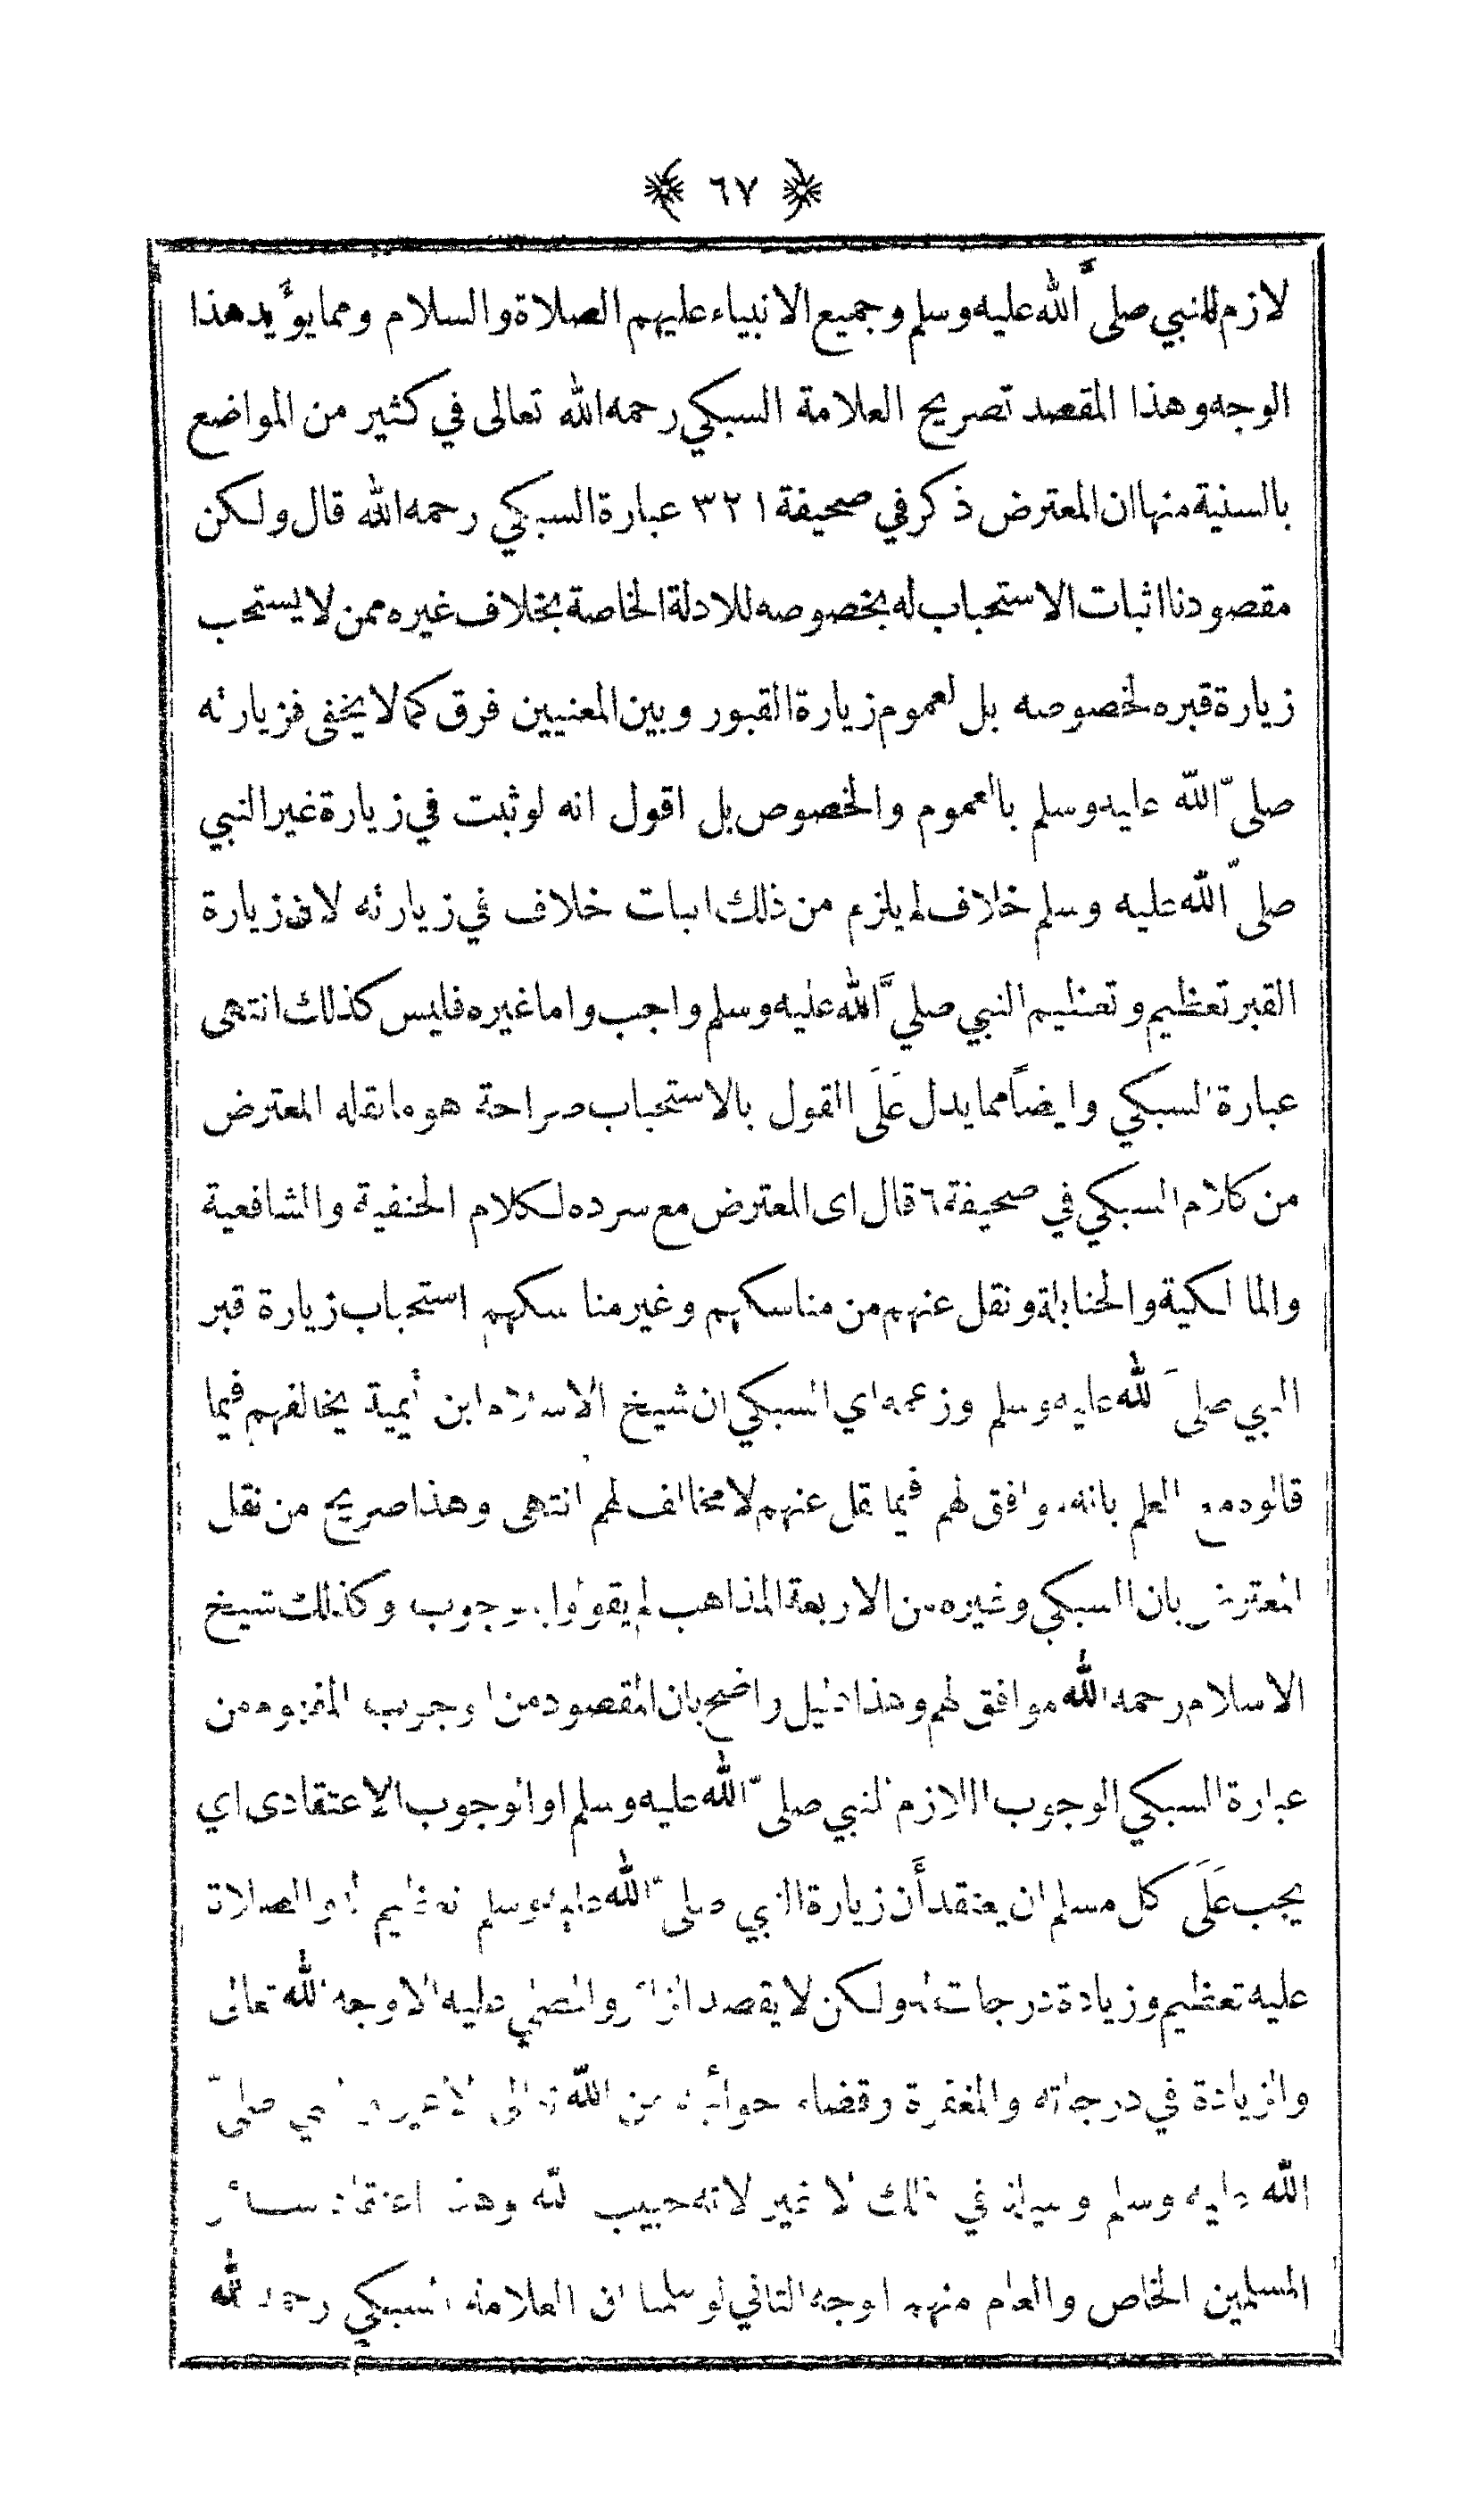 ﴿ ٦٧ ﴾
لازم للنبي صلى الله عليه وسلم وجميع الانبياء عليهم الصلاة والسلام ومما يؤيد هذا
الوجه وهذا المقصد تصريح العلامة السبكي رحمه الله تعالى في كثير من المواضع
بالسنية منها ان المعترض ذكر في صحيفة ٣٢١ عبارة السبكي رحمه الله قال ولكن
مقصودنا اثبات الاستحباب له بخصوصه للادلة الخاصة بخلاف غيره ممن لا يستحب
زيارة قبره لخصوصه بل لعموم زيارة القبور وبين المعنيين فرق كما لا يخفى فزيارته
صلى الله عليه وسلم بالعموم والخصوص بل اقول انه لو ثبت في زيارة غير النبي
صلى الله عليه وسلم خلاف لم يلزم من ذلك اثبات خلاف في زيارته لان زيارة
القبر تعظيم وتعظيم النبي صلي الله عليه وسلم واجب واما غيره فليس كذلك انتهى
عبارة السبكي وايضاً مما يدل عَلَى القول بالاستحباب صراحة هو ما نقله المعترض
من كلام السبكي في صحيفة ٦ قال اى المعترض مع سرده لكلام الحنفية والشافعية
والمالكية والحنابلة ونقل عنهم من مناسكهم وغير مناسكهم استحباب زيارة قبر
النبي صلى الله عليه وسلم وزعمه اي السبكي ان شيخ الاسلام ابن تيمية يخالفهم فيما
قالوه مع العلم بانه موافق لهم فيما نقل عنهم لا مخالف لهم انتهى وهذا صريح من نقل
المعترض بان السبكي وغيره من الاربعة المذاهب لم يقولوا بوجوب وكذلك شيخ
الاسلام رحمه الله موافق لهم وهذا دليل واضح بان المقصود من الوجوب المفهوم من
عبارة السبكي الوجوب اللازم للنبي صلى الله عليه وسلم او الوجوب الاعتقادى اي
يجب عَلَى كل مسلم ان يعتقد أَن زيارة النبي صلى الله عليه وسلم تعظيم له والصلاة
عليه تعظيم وزيادة درجات له ولكن لا يقصد الزائر والمصلي عليه الا وجه الله تعالى
والزيادة في درجاته والمغفرة وقضاء حوائجه من الله تعالى لا غير والنبي صلى
الله عليه وسلم وسيلة في ذلك لا غير لانه حبيب الله وهذا اعتقاد سائر
المسلمين الخاص والعام منهم الوجه الثاني لو سلمنا ان العلامة السبكي رحمه الله